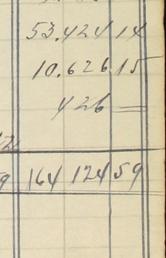 53.424 14
10.626 15
426 —
164 124 59